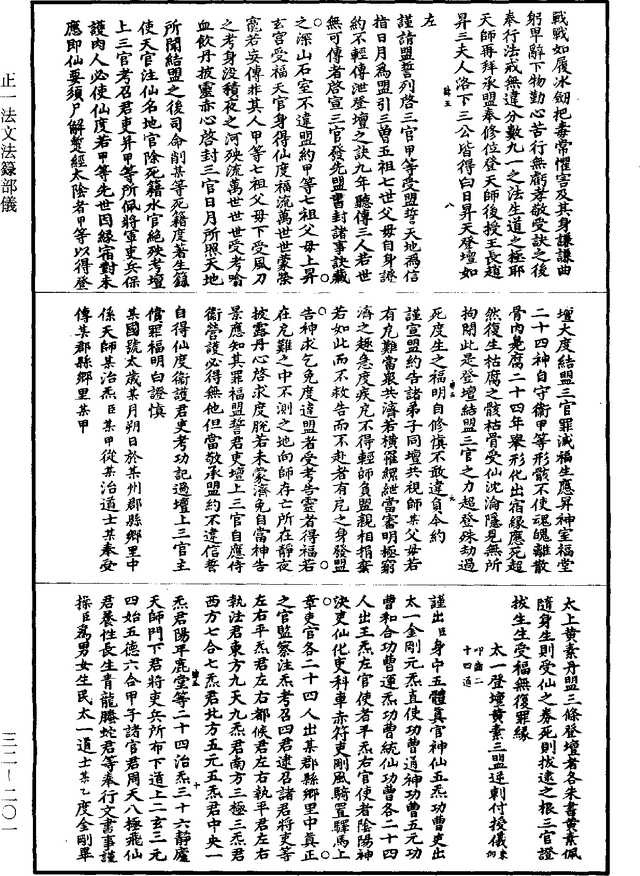 戰戰如履冰劒把毒常懼害及其身謙謙曲
躬卑辭下物勤心苦行無虧孝敬受訣之後
奉行法戒無違分數九一之法生道之極耶
天師再拜承盟奉修位登天師後授王長趙
昇三夫人洛下三公皆得白日昇天登壇如
左
謹請盟誓列啓三官甲等受盟誓天地爲信
指日月爲盟引三曾五祖七世父母自身證
約不輕傳泄登壇之訣九年聽傳三人若世
無可傳者啓宣三官發先盟書封諸事訣藏
之深山石室不違盟約甲等七祖父母上昇
玄宮受福天官身得仙度福流萬世世蒙榮
寵若妄傳非其人甲等七祖父母下受風刀
之考身没積夜之河殃流萬世世受考喻
血飲丹披靈赤心啓封三官日月所照天地
所聞結盟之後司命削某等死籍度著生録
使天官注仙名地官除死籍水官絶殃考壇
上三官考召君吏昇甲等所佩將軍吏兵保
護肉人必使仙度若甲等先世因緣宿對未
應即仙要須尸解蹔經太陰者甲等以得登
壇大度結盟三官罪滅福生應昇神室福堂
二十四神自守衞甲等形骸不使魂魄離散
骨肉臭腐二十四年舉形化出宿緣應死超
然復生枯腐之骸枯骨受仙沈淪隱見無所
拘閡此是登壇結盟三官之力超登殊劫過
死度生之福明自修慎不敢違負令約
謹宣盟約告諸弟子同壇共視師某父母若
有危難當衆共濟若横羅縲紲當審明極窮
濟之趣急度疾厄不得輕師負盟親相捐棄
若如此而不救告而不赴者有厄之身發盟
告神求乞免度違盟者受考告靈者得福若
在危難之中不測之地向師存亡所在靜夜
披露丹心啓求度脱若未蒙濟免自當神告
景應知其罪福盟誓君吏壇上三官自應侍
衞營護必得無他但當敬承盟約不違信誓
自得仙度衞護君吏考功記過壇上三官主
償罪福明白證慎
某國號太歲某月朔日於某州郡縣鄉里中
係天師某治炁臣某甲從某治道士某奉受
傳某郡縣鄉里某甲
太上黄素丹盟三條登壇者各朱書黄素佩
隨身生則受仙之券死則拔逮之根三官證
拔生生受福無復罪緣
太一登壇黄素三盟逆剌付授儀
叩齒二
十四通
謹出臣身中五體真官神仙五炁功曹吏出
太一金剛元炁直使功曹道神功曹五元功
曹和合功曹運炁功曹統仙功曹各二十四
人出王炁左官使者平炁右官使者陰陽神
決吏仙化吏科車赤符吏剛風騎置驛馬上
章吏官各二十四人出某郡縣鄉里中真正
之官監察注炁考召四君逮召諸君將吏等
左右平炁君左右都候君左右執平君左右
執法君東方九天九炁君南方三極三炁君
西方七合七炁君北方五元五炁君中央一
炁君陽平鹿堂等二十四治炁三十六靜廬
天師門下君將吏兵所布下道上二玄三元
四始五德六合甲子諸官君周天八極飛仙
君養性長生青龍騰蛇君等奉行文書事謹
操臣爲男女生民太一道士某乙度金剛畢
正一法文法籙部儀
三二－二〇一